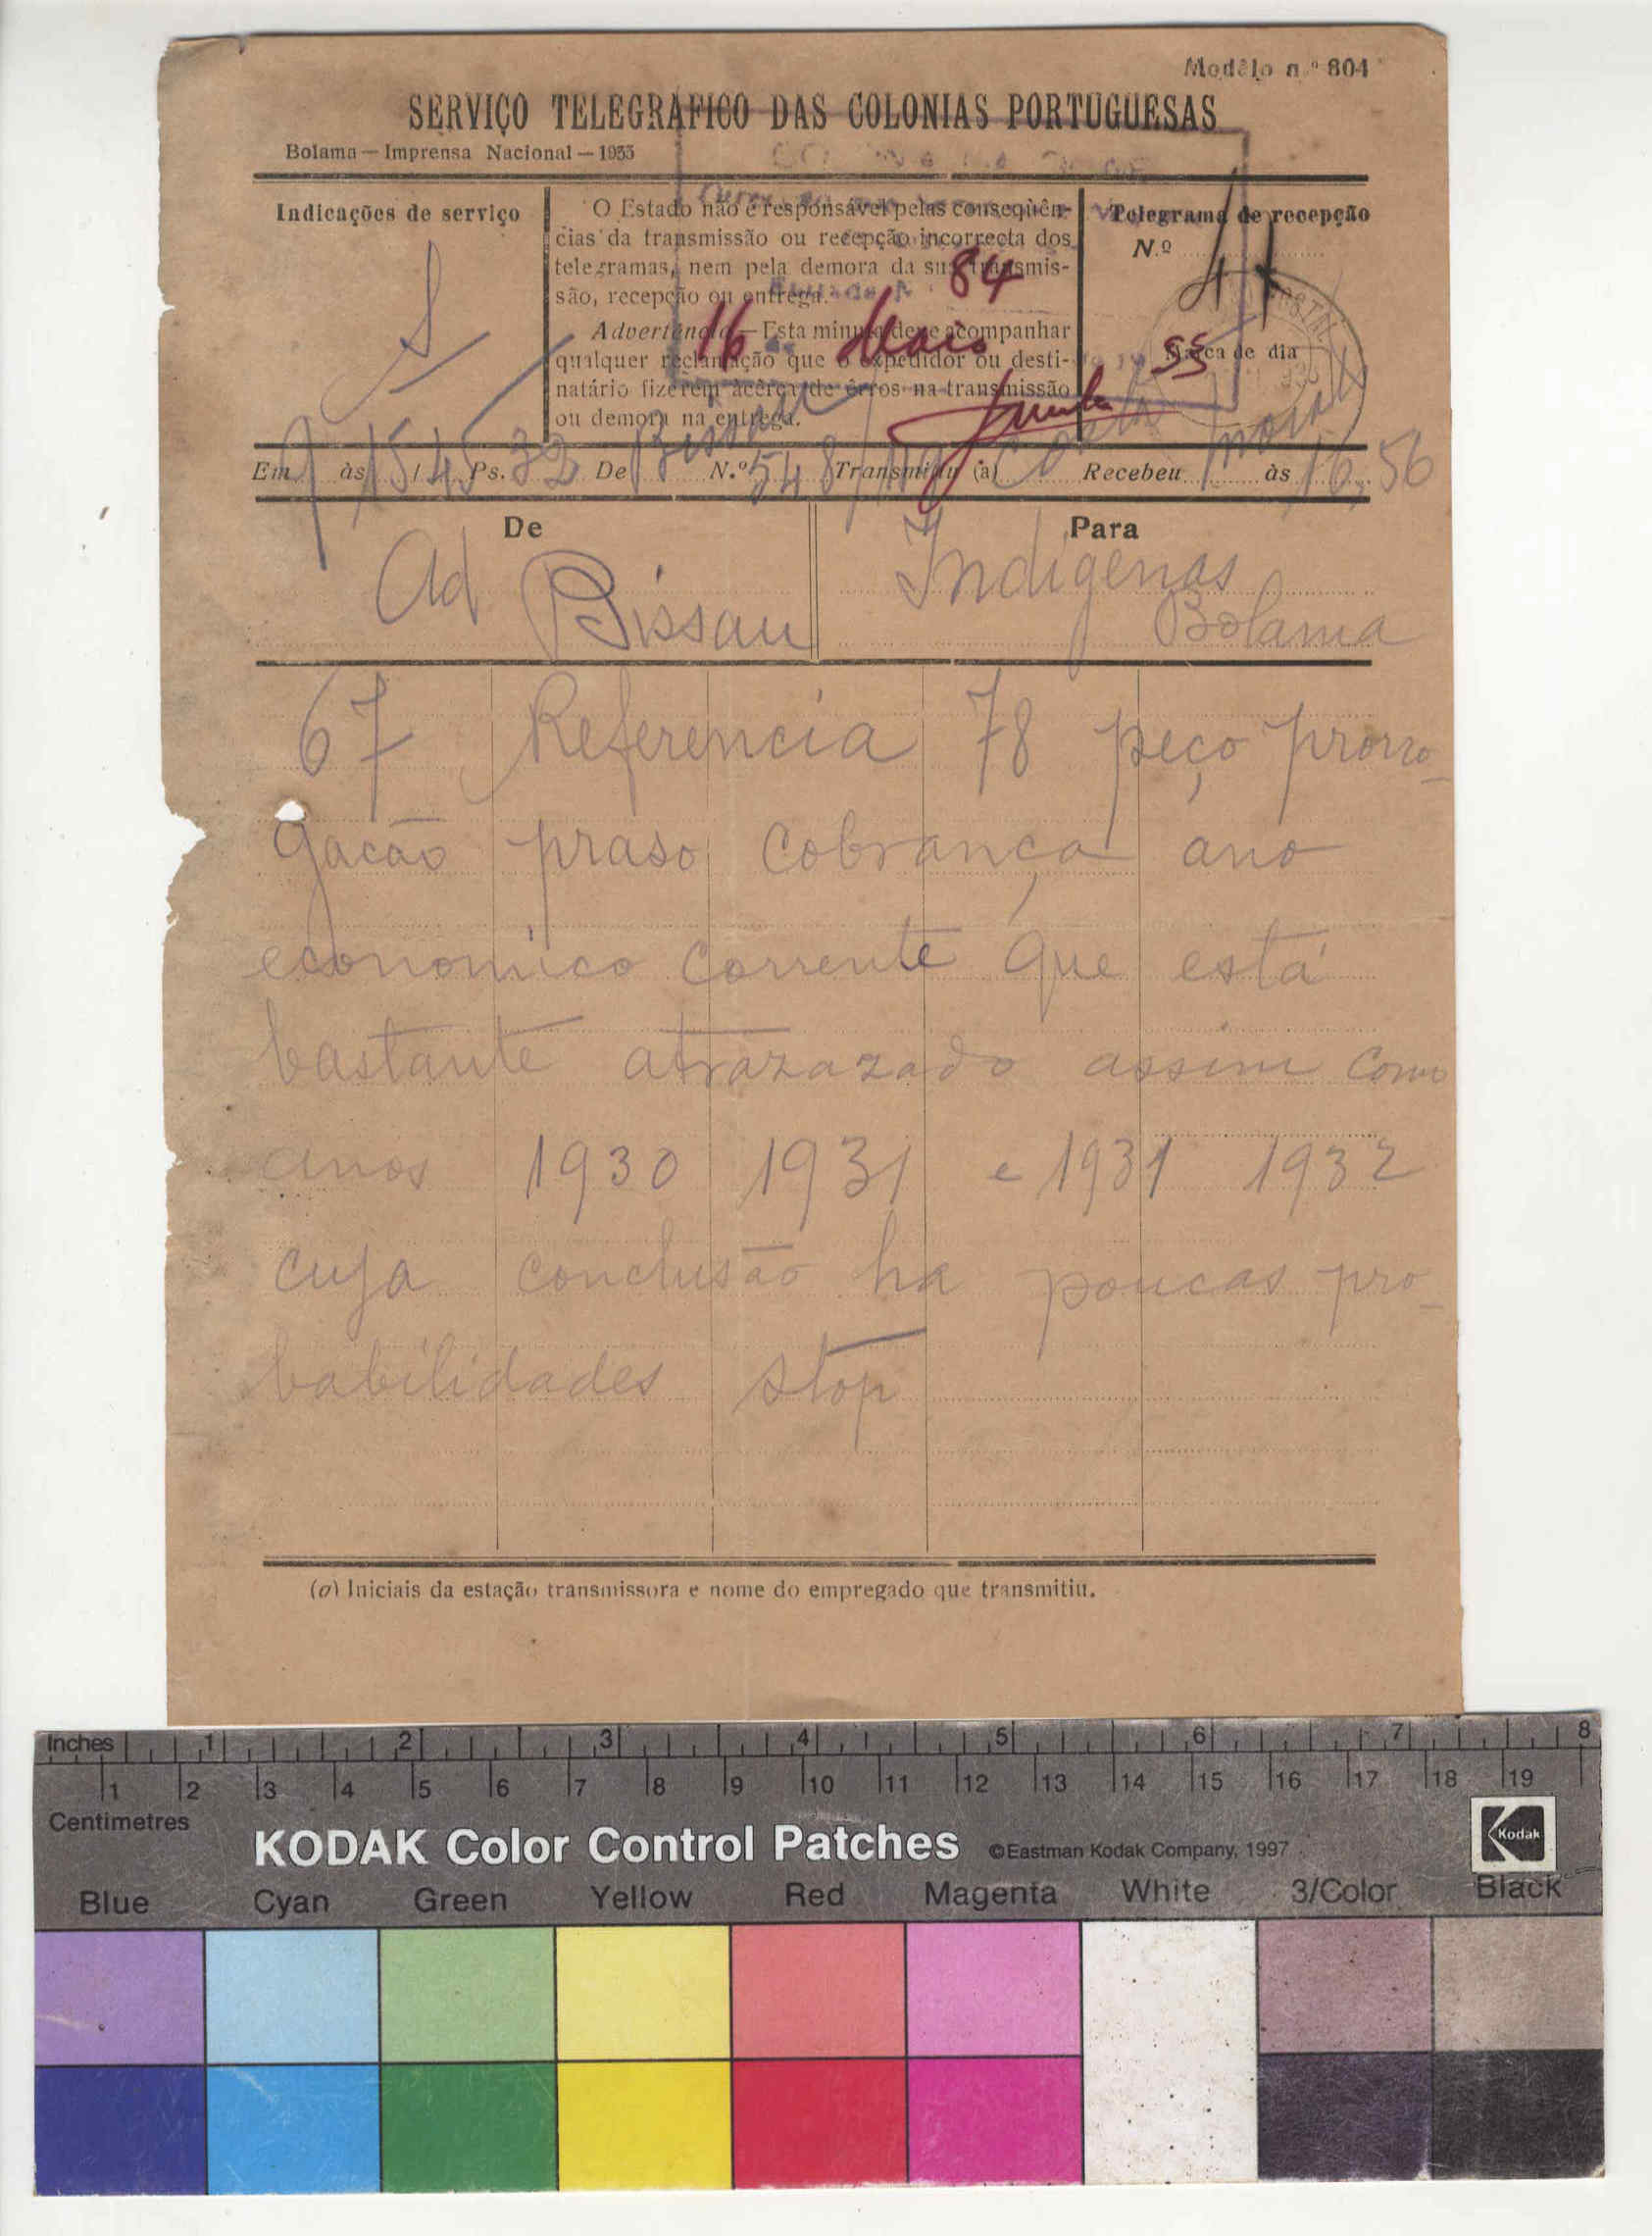 Modêlo n.º 804
SERVIÇO TELEGRAFICO DAS COLONIAS PORTUGUESAS
Bolama — Imprensa Nacional — 1933
Indicações de serviço
O Estado não é responsável pelas conseqüên-
cias da transmissão ou recepção incorrecta dos
telegramas, nem pela demora da sua transmis-
são, recepção ou entrega.
Advertência — Esta minuta deve acompanhar
qualquer reclamação que o expedidor ou desti-
natário fizerem àcêrca de êrros na transmissão
ou demora na entrega.
84
16 Maio
35
Telegrama de recepção
N.º
Marca de dia
Em 9 às 15/45 Ps. 32 De Bissau N.º 548 Transmitiu (a) Costa Recebeu às 16,56
De
Para
Ad Bissau
Indigenas Bolama
67 Referencia 78 peço prorro-
gacão praso cobrança ano
economico corrente que está
bastante atrazazado assim como
anos 1930 1931 e 1931 1932
cuja conclusão ha poucas pro-
babilidades stop
(a) Iniciais da estação transmissora e nome do empregado que transmitiu.
Inches 1 2 3 4 5 6 7 8
1 2 3 4 5 6 7 8 9 10 11 12 13 14 15 16 17 18 19
Centimetres
KODAK Color Control Patches ©Eastman Kodak Company, 1997
Kodak
Blue Cyan Green Yellow Red Magenta White 3/Color Black